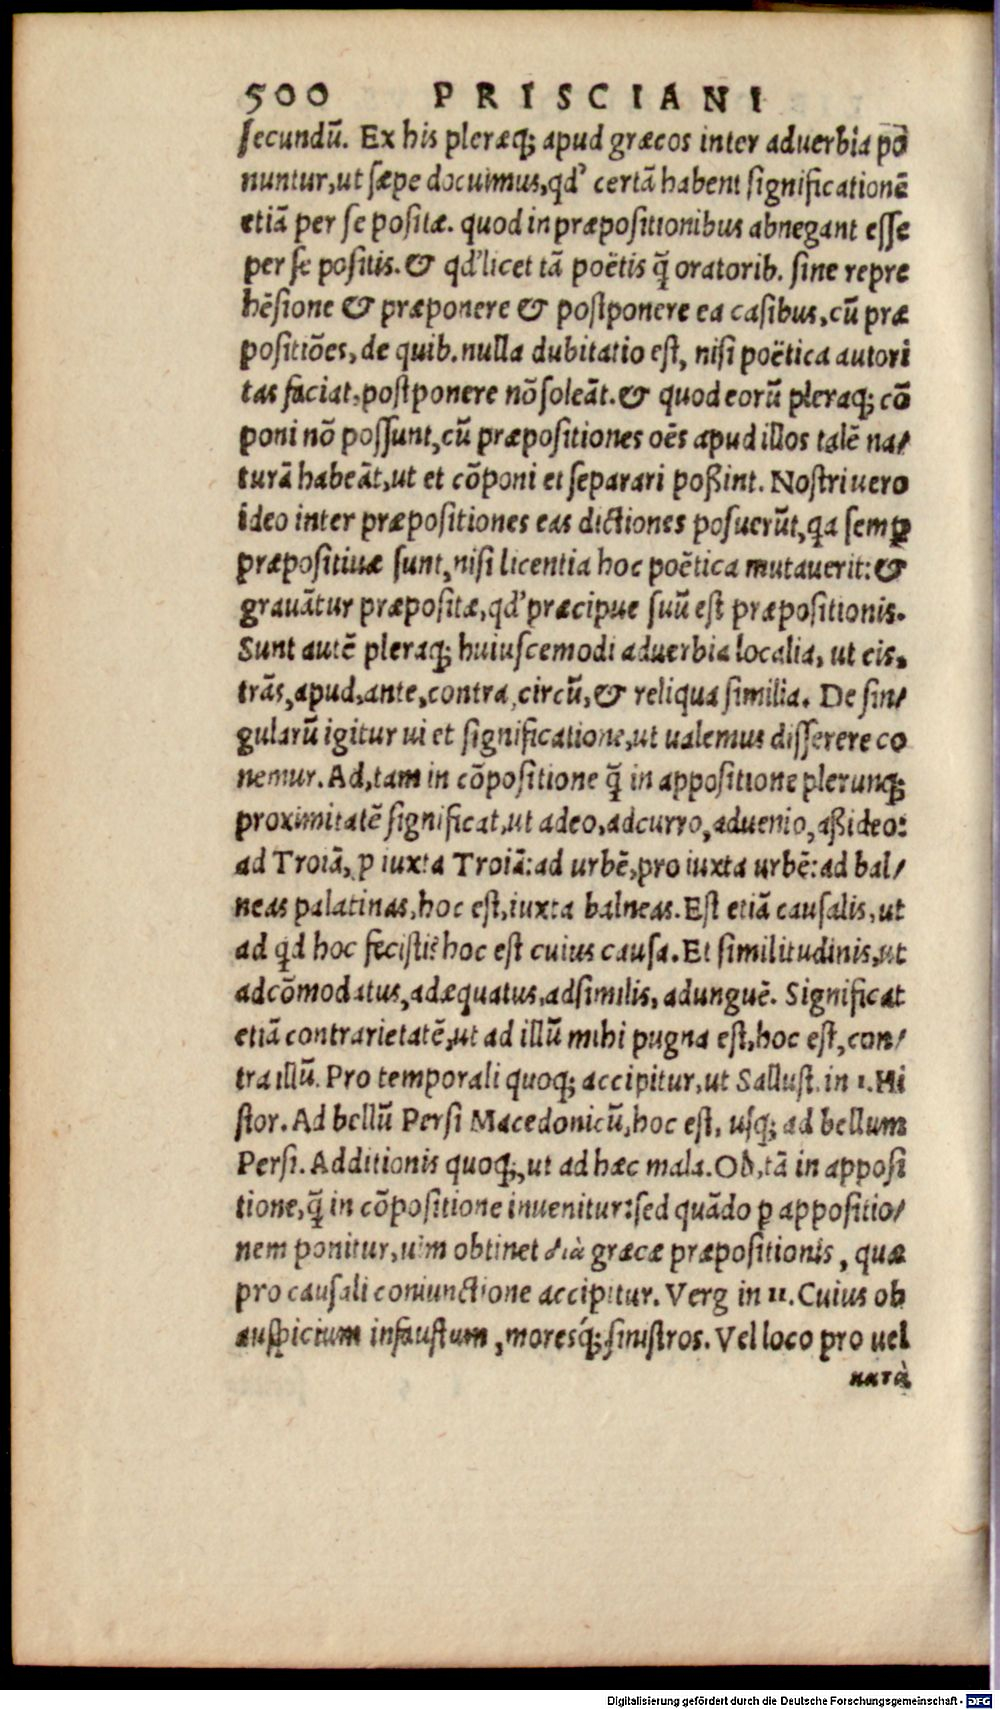 500 PRISCIANI
secundũ. Ex his pleræq; apud græcos inter aduerbia pō
nuntur, ut sæpe docuimus, qd' certã habent significationẽ
etiã per se positæ. quod in præpositionibus abnegant esse
per se positis. & qd' licet tã poëtis q̃ oratorib. sine repre
hẽsione & præponere & postponere ea casibus, cũ præ
positiões, de quib. nulla dubitatio est, nisi poëtica autori
tas faciat, postponere nõ soleãt. & quod eorũ pleraq; cõ
poni nõ possunt, cũ præpositiones oẽs apud illos talẽ na/
turã habeãt, ut et cõponi et separari poßint. Nostri uero
ideo inter præpositiones eas dictiones posuerũt, qa semꝑ
præpositiuæ sunt, nisi licentia hoc poẽtica mutauerit: &
grauãtur præpositæ, qd' præcipue suũ est præpositionis.
Sunt autẽ pleraq; huiuscemodi aduerbia localia, ut cis,
trãs, apud, ante, contra, circũ, & reliqua similia. De sin/
gularũ igitur ui et significatione, ut ualemus disserere co
nemur. Ad, tam in cõpositione q̃ in appositione plerunq;
proximitatẽ significat, ut adeo, adcurro, aduenio, aßideo:
ad Troiã, ꝓ iuxta Troiã: ad urbẽ, pro iuxta urbẽ: ad bal/
neas palatinas, hoc est, iuxta balneas. Est etiã causalis, ut
ad qd hoc fecisti? hoc est cuius causa. Et similitudinis, ut
adcõmodatus, adæquatus, adsimilis, adunguẽ. Significat
etiã contrarietatẽ, ut ad illũ mihi pugna est, hoc est, con/
tra illũ. Pro temporali quoq; accipitur, ut Sallust. in 1. Hi
stor. Ad bellũ Persi Macedonicũ, hoc est, usq; ad bellum
Persi. Additionis quoq;, ut ad hæc mala. Ob, tã in apposi
tione, q̃ in cõpositione inuenitur: sed quãdo ꝑ appositio/
nem ponitur, uim obtinet διὰ græcæ præpositionis, quæ
pro causali coniunctione accipitur. Verg in 11. Cuius ob
auspicium infaustum, moresq́; sinistros. Vel loco pro uel
κατὰ
Digitalisierung gefördert durch die Deutsche Forschungsgemeinschaft - DFG